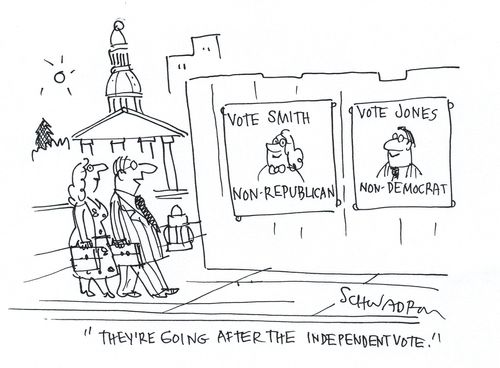 VOTE SMITH
NON-REPUBLICAN
VOTE JONES
NON-DEMOCRAT
SCHWADRON
"THEY'RE GOING AFTER THE INDEPENDENT VOTE."